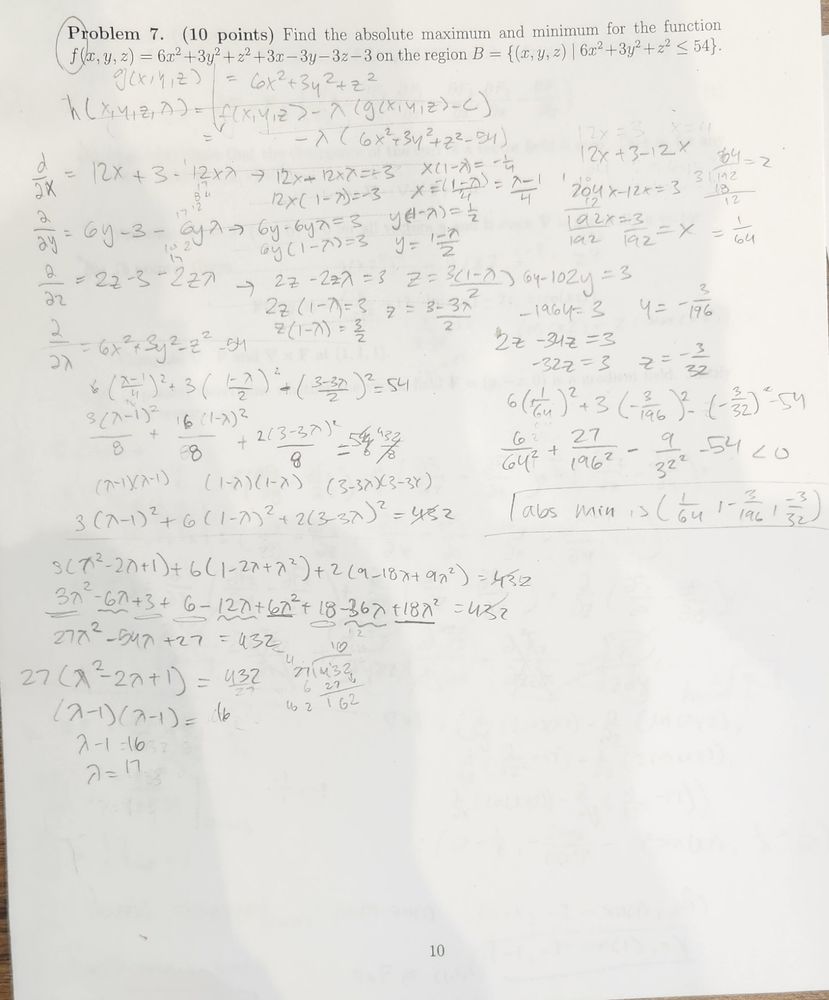 Problem 7. (10 points) Find the absolute maximum and minimum for the function
f(x, y, z) = 6x²+3y²+z²+3x−3y−3z−3 on the region B = {(x, y, z) | 6x²+3y²+z² ≤ 54}.
g(x,y,z) = 6x²+3y²+z²
h(x,y,z,λ) = f(x,y,z) - λ(g(x,y,z)-c)
= - λ(6x²+3y²+z²-54)
∂/∂x = 12x + 3 - 12xλ → 12x - 12xλ = -3 x(1-λ) = -1/4
12x(1-λ) = -3 x = -(1-λ)/4 = λ-1/4
∂/∂y = 6y - 3 - 6yλ → 6y - 6yλ = 3 y(1-λ) = 1/2
6y(1-λ) = 3 y = 1-λ/2
∂/∂z = 2z - 3 - 2zλ → 2z - 2zλ = 3 z = 3(1-λ)/2
2z(1-λ) = 3 z = 3-3λ/2
z(1-λ) = 3/2
∂/∂λ = 6x²+3y²-z²-54
6(λ-1/4)² + 3(1-λ/2)² + (3-3λ/2)² = 54
3(λ-1)²/8 + 6(1-λ)²/8 + 2(3-3λ)²/8 = 432/8
(λ-1)(λ-1) (1-λ)(1-λ) (3-3λ)(3-3λ)
3(λ-1)² + 6(1-λ)² + 2(3-3λ)² = 432
3(λ²-2λ+1) + 6(1-2λ+λ²) + 2(9-18λ+9λ²) = 432
3λ²-6λ+3 + 6-12λ+6λ² + 18-36λ+18λ² = 432
27λ²-54λ+27 = 432
27(λ²-2λ+1) = 432/27
(λ-1)(λ-1) = 16
λ-1 = 16
λ = 17
12x = 3
12x+3-12x
204x-12x = 3
192x/192 = 3/192 = x = 1/64
6y-102y = 3
-196y = 3 y = -3/196
2z-34z = 3
-32z = 3 z = -3/32
6(1/64)² + 3(-3/196)² - (-3/32)² - 54
6/64² + 27/196² - 9/32² - 54 < 0
abs min is (1/64, -3/196, -3/32)
10